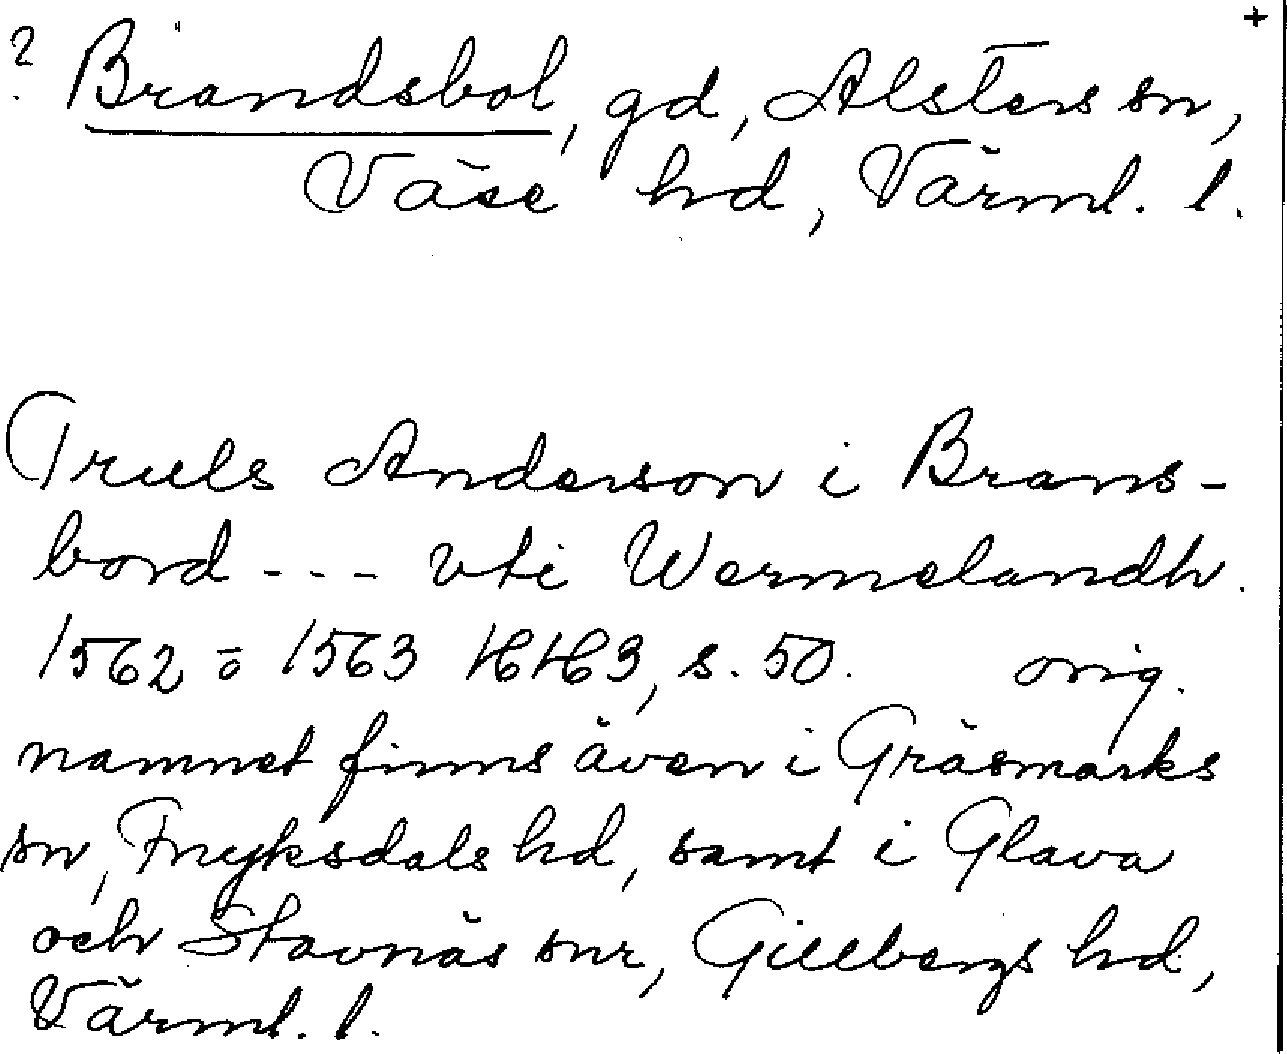 ? Brandsbol, gd, Alsters sn, +
Väse hd, Värml. l.
Truls Anderson i Brans-
bord --- vti Wermelandh.
1562 ö 1563 HH3, s. 50. orig.
namnet finns även i Gräsmarks
sn, Fryksdals hd, samt i Glava
och Stavnäs snr, Gillbergs hd,
Värml. l.